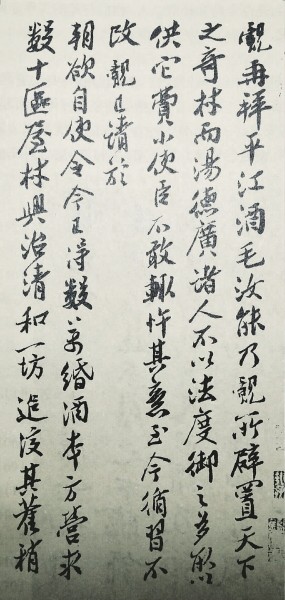 覿再拜平江酒毛汝能乃覿所辟置天下
之奇材而湯德廣諸人不以法度御之多取以
供它費小使臣不敢輒忤其意至今循習不
改覿已請於
朝欲自使令今已得數万緡酒本方營求
數十區屋材興治清和一坊追復其舊稍